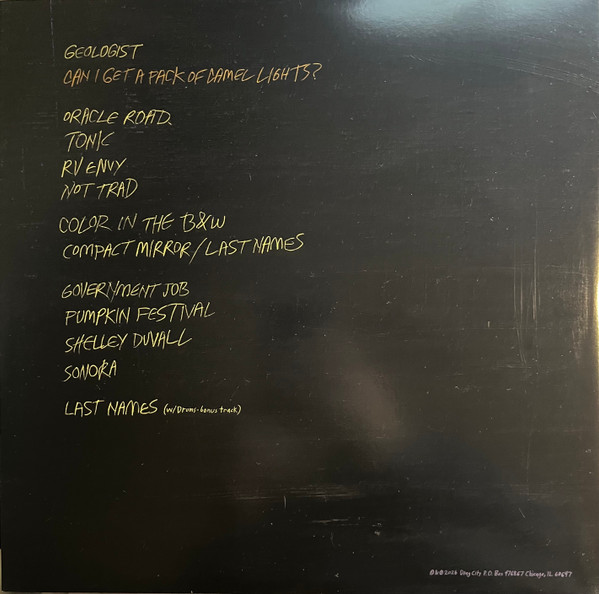 GEOLOGIST
CAN I GET A PACK OF CAMEL LIGHTS?
ORACLE ROAD
TONIC
RV ENVY
NOT TRAD
COLOR IN THE B&W
COMPACT MIRROR/LAST NAMES
GOVERNMENT JOB
PUMPKIN FESTIVAL
SHELLEY DUVALL
SONORA
LAST NAMES (w/Drums-bonus track)
℗&© 2026 Drag City P.O. Box 476867 Chicago, IL 60647